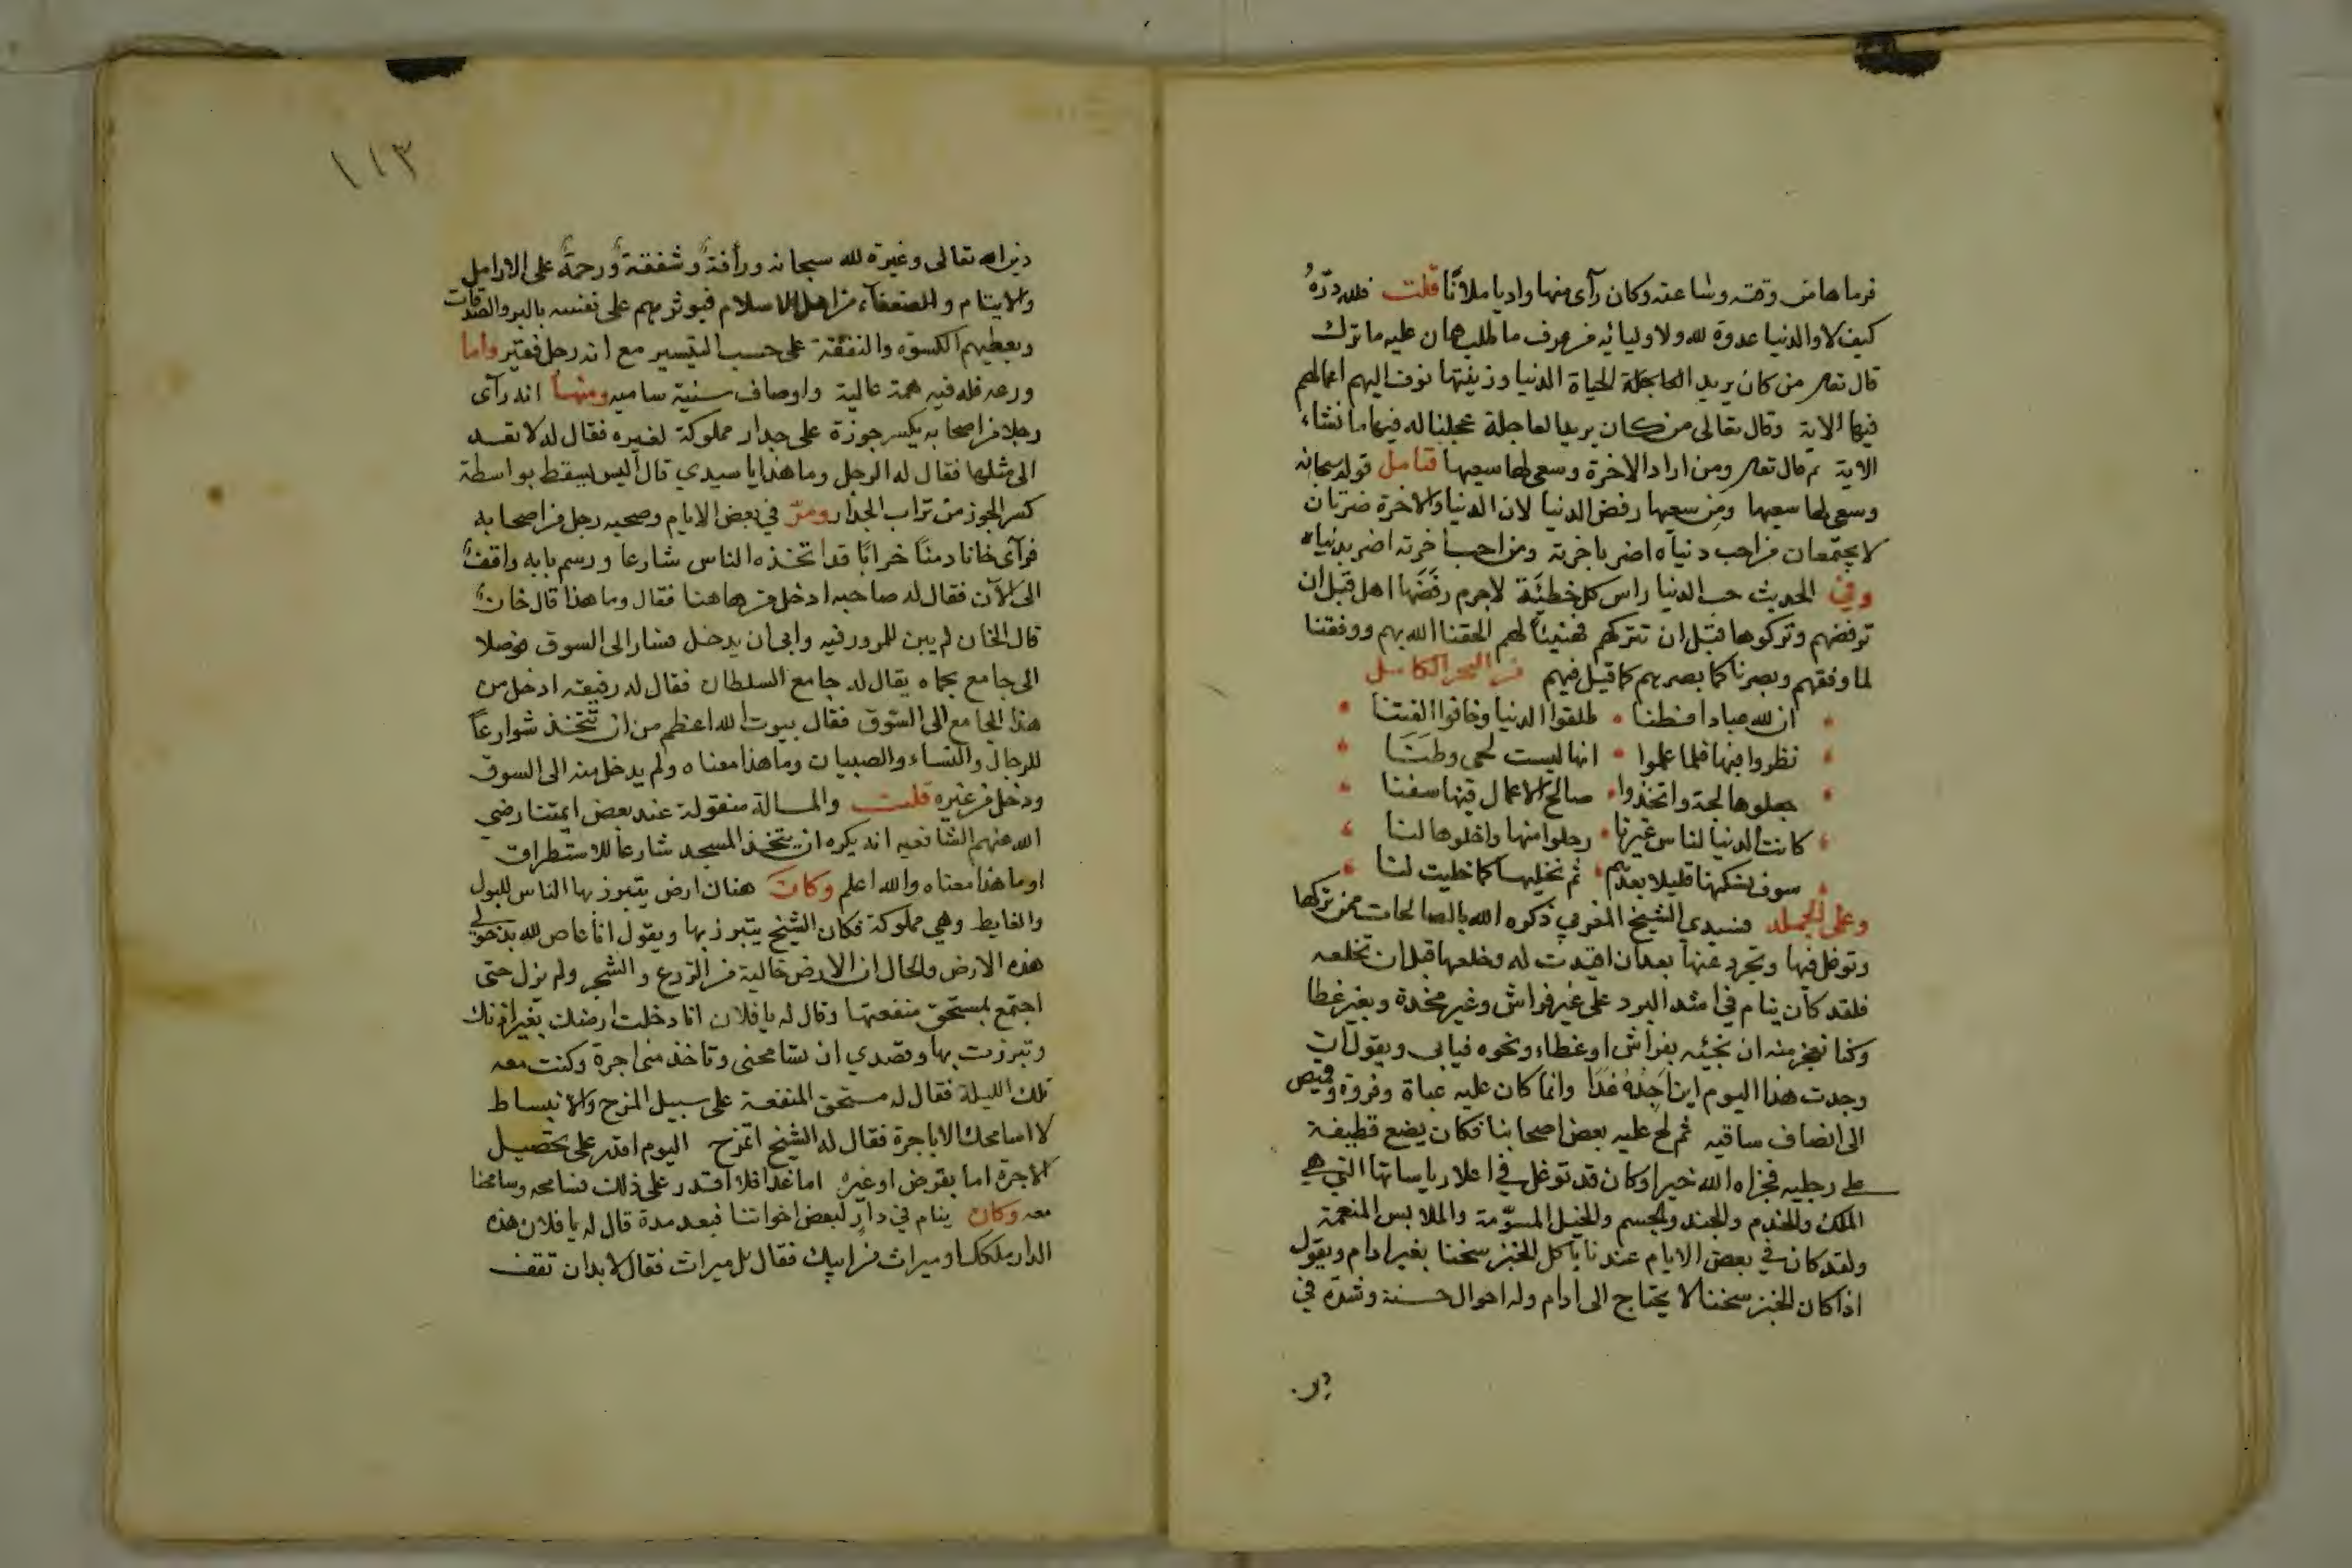 فرماها من وقته وساعته وكان رآى منها واديا ملآنًا قلت فلله درّهُ
كيف لا والدنيا عدوة لله ولاوليائه فمن عرف ما طلب هان عليه ما ترك
قال تعالى من كان يريد العاجلة الحياة الدنيا وزينتها نوف اليهم اعمالهم
فيها الاية وقال تعالى من كان يريد العاجلة عجلنا له فيها ما نشاء
الاية ثم قال تعالى ومن اراد الاخرة وسعى لها سعيها فتامل قوله سبحانه
وسعى لها سعيها ومن سعيها رفض الدنيا لان الدنيا والاخرة ضرتان
لا يجتمعان فمن احب دنياه اضر باخرته ومن احب اخرته اضر بدنياه
وفي الحديث حب الدنيا راس كل خطيئة لاجرم رفضها اهل قبل ان
ترفضهم وتركوها قبل ان تتركهم فهنيئًا لهم الحقنا الله بهم ووفقنا
لما وفقهم وبصرنا كما بصرهم كما قيل فيهم من البحر الكامل
ان لله عبادا فطنا • طلقوا الدنيا وخافوا الفتنا
نظروا فيها فلما علموا • انها ليست لحي وطنا
جعلوها لجة واتخذوا • صالح الاعمال فيها سفنا
كانت الدنيا لناس غيرنا • رحلوا منها واخلوها لنا
سوف نسكنها قليلا بعدهم • ثم نخليها كما خليت لنا
وعلى الجملة فسيدي الشيخ المغربي ذكره الله بالصالحات ممن تركها
وتوغل فيها وتجرد عنها بعد ان اقيدت له وخلعها قبل ان تخلعه
فلقد كان ينام في اشد البرد على غير فراش وغير مخدة وبغير غطا
وكنا نعجز منه ان نجيئه بفراش او غطاء ونحوه فيابى ويقول ان
وجدت هذا اليوم اين اجده غدا وانما كان عليه عباة وفروة وقميص
الى انصاف ساقيه ثم لح عليه بعض اصحابنا فكان يضع قطيفة
على رجليه فجزاه الله خيرا وكان قد توغل في اعلا رياساتها التي هي
الملك والخدم والجند والجسم والخيل المسوّمة والملابس المنعمة
ولقد كان في بعض الايام عندنا ياكل الخبز سخنا بغير ادام ويقول
اذا كان الخبز سخنا لا يحتاج الى ادام وله احوال حسنة وشدّة في
دين
١١٣
دين الله تعالى وغيرة لله سبحانه ورأفةً وشفقةً ورحمةً على الارامل
والايتام والضعفاء من اهل الاسلام فيوثرهم على نفسه بالبر والصدقات
ويعطيهم الكسوة والنفقة على حسب التيسير مع انه رجل فقير واما
ورعه فله فيه همة عالية واوصاف سنية ساميه ومنها انه رآى
رجلا من اصحابه يكسر جوزة على جدار مملوكة لغيره فقال له لا تعد
الى مثلها فقال له الرجل وما هذا يا سيدي قال اليس يسقط بواسطة
كسر الجوز من تراب الجدار ومرّ في بعض الايام وصحبه رجل من اصحابه
فرآى خانا دمنًا خرابًا قد اتخذه الناس شارعا ورسم بابه واقفٌ
الى الآن فقال له صاحبه ادخل من هاهنا فقال وما هذا قال خانٌ
قال الخان لم يبن للمرور فيه وابى ان يدخل فسار الى السوق فوصلا
الى جامع بحماه يقال له جامع السلطان فقال له رفيقه ادخل من
هذا الجامع الى السّوق فقال بيوت الله اعظم من ان تتخذ شوارعًا
للرجال والنساء والصبيان وما هذا معناه ولم يدخل منه الى السوق
ودخل من غيره قلت والمسالة منقولة عند بعض ايمتنا رضي
الله عنهم الشافعيه انه يكره ان يتخذ المسجد شارعا للاستطراق
او ما هذا معناه والله اعلم وكان هناك ارض يتبرز بها الناس للبول
والغايط وهي مملوكة فكان الشيخ يتبرز بها ويقول انا عاص لله بدخولي
هذه الارض والحال ان الارض خالية من الزرع والشجر ولم يزل حتى
اجتمع بمستحق منفعتها وقال له يا فلان انا دخلت ارضك بغير اذنك
وتبرزت بها وقصدي ان تسامحني وتاخذ مني اجرة وكنت معه
تلك الليلة فقال له مستحق المنفعة على سبيل المزح والانبساط
لا اسامحك الا باجرة فقال له الشيخ اتمزح اليوم اقدر على تحصيل
الاجرة اما بقرض او غيره اما غدا فلا اقدر على ذلك فسامحه وسامحنا
معه وكان ينام في دارٍ لبعض اخواننا فبعد مدة قال له يا فلان هذه
الدار ملكك او ميراث من ابيك فقال بل ميراث فقال لا بد ان تقف